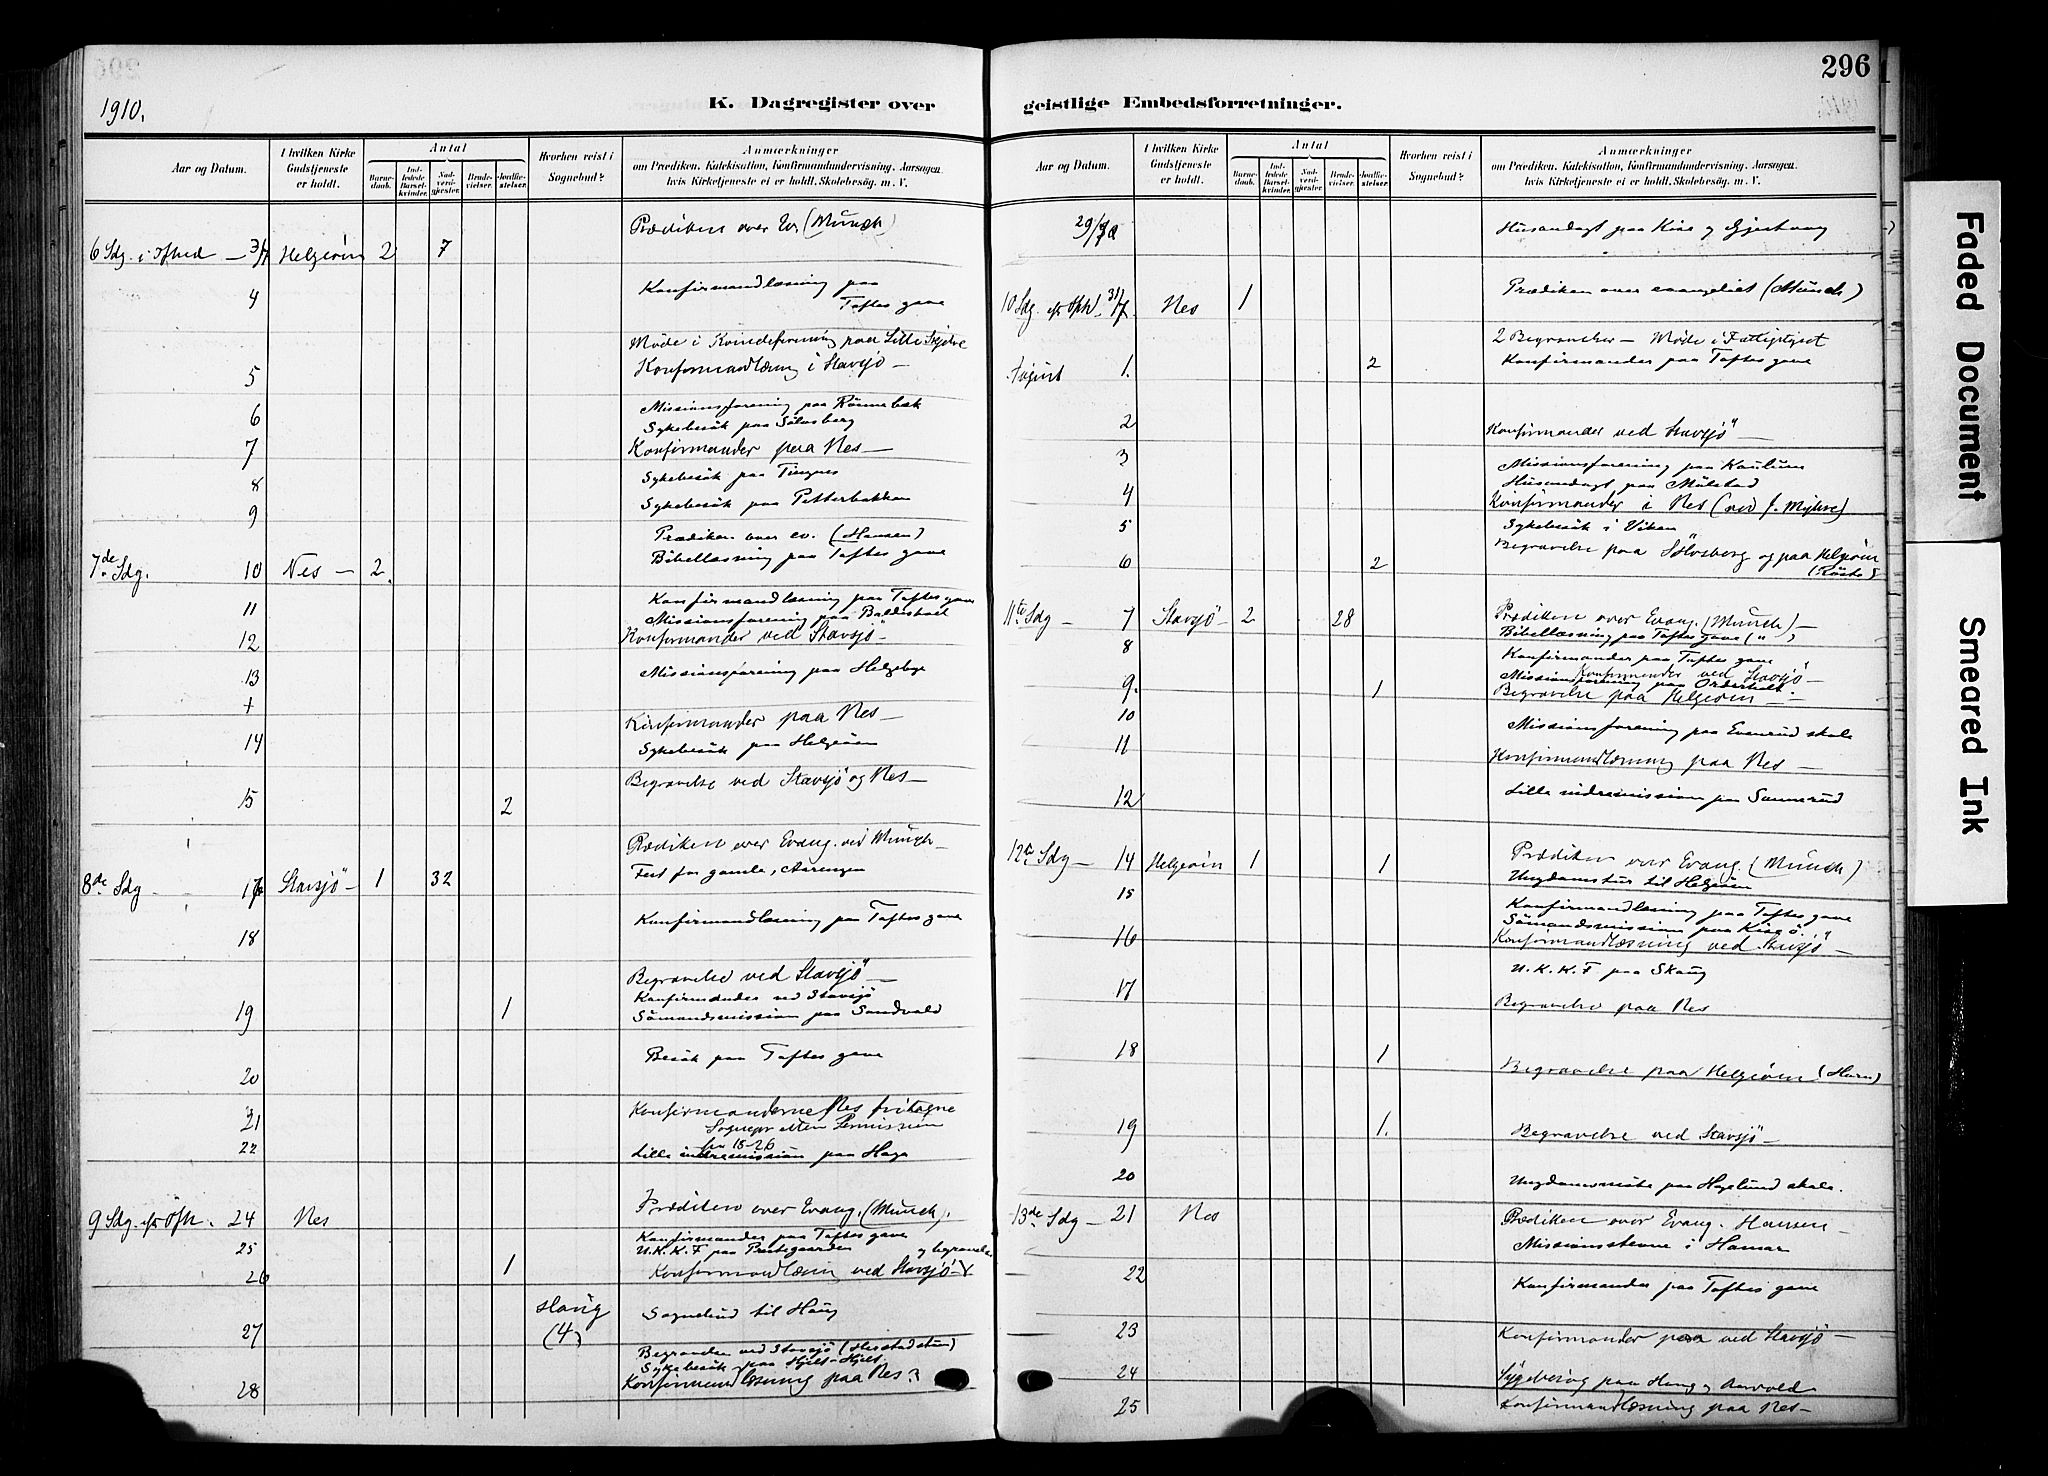 296
1910.
K. Dagregister over geistlige Embedsforretninger.
Aar og Datum.
I hvilken Kirke Gudstjeneste er holdt.
Antal
Barnedaab.
Indledede Barselkvinder.
Nadverdgjester.
Brudevielser.
Jordfæstelser.
Hvorhen reist i Sognebud?
Anmærkninger
om Prædiken, Katekisation, Konfirmandundervisning, Aarsagen,
hvis Kirketjeneste ei er holdt, Skolebesøg, m. V.
Prædiken over Ev. (Münch)
6 Sdg. i Ofhed — 3/7 Helgeøen 2 7
4 Konfirmandlæsning paa
Toftes gave
Møde i Kvindeforening paa Lille Skjelve
5 Konfirmandlæsning i Stavsjö —
Missionsforening paa Rönnebæk
6 Sykebesök paa Sölvsberg
7 Konfirmander paa Nes —
8 Sykebesök paa Tingnes
9 Sykebesök paa Petterbakken
Prædiken over ev. (Hansen)
7de Sdg. 10 Nes — 2. Bibellæsning paa Toftes gave
11 Konfirmandlæsning paa Toftes gave
Missionsforening paa Baldishol
12 Konfirmander ved Stavsjö —
13 Missionsforening paa Helgeby
+
Konfirmander paa Nes —
14 Sykebesök paa Helgeøen
Begravelse ved Stavsjö og Nes —
15 2
Prædiken over Evang. ved Münch —
8de Sdg — 17 Stavsjö — 1 32 Fest for gamle,
18 Konfirmandlæsning paa Toftes gave
Begravelse ved Stavsjö —
Konfirmander ved Stavsjö
19 1 Sömandsmission paa Sandvold
20 Besök paa Toftes gave
21 Konfirmanderne Nes fritagne
Sognepr. permission
22 fra 15-26
Lille indremission paa Haga
9 Sdg. efr Ofh. 24 Nes Prædiken over Evang. (Münch).
25 Konfirmander paa Toftes gave
U.K.K.F paa Prestegaarden og begravelse
26 1 Konfirmandlæsn ved Stavsjö
27 Haug (4) Sognebud til Haug
Begravelse ved Stavsjö
Sykebesök paa Hjelt
28 Konfirmandlæsning paa Nes
Aar og Datum.
I hvilken Kirke Gudstjeneste er holdt.
Antal
Barnedaab.
Indledede Barselkvinder.
Nadverdgjester.
Brudevielser.
Jordfæstelser.
Hvorhen reist i Sognebud?
Anmærkninger
om Prædiken, Katekisation, Konfirmandundervisning, Aarsagen,
hvis Kirketjeneste ei er holdt, Skolebesøg, m. V.
29/7 Husandagt paa Kise og
10 Sdg. efr Oph. 31/7. Nes 1 Prædiken over evangeliet (Münch)
2 Begravelser — Møde i Fattigstyret
August 1. 2 Konfirmander paa Toftes gave
2 Konfirmander ved Stavsjö —
3 Missionsforening paa
4 Husandagt paa Mælstad
Konfirmander i Nes (ved f. Myhre)
5 Sykebesök i Viken
6 2 Begravelse paa Sölvsberg og paa Helgeøen
11te Sdg — 7 Stavsjö — 2 28 Prædiken over Evang. (Münch) —
Bibellæsning paa Toftes gave (")
8 Konfirmander paa Toftes gave
Konfirmander ved Stavsjö —
9. 1 Missionsforening paa
Begravelse paa Helgeøen —
10 Missionsforening paa Evenrud skole
11 Konfirmandlæsning paa Nes —
12 Lille indremission paa Sannerud
12te Sdg — 14 Helgeøen 1 1 Prædiken over Evang. (Münch)
Ungdomstur til Helgøen
15 Konfirmandlæsning paa Toftes gave
Sömandsmission paa
16 Konfirmandlæsning ved Stavsjö —
17 U.K.K.F paa Skaug
Begravelse paa Nes
18 1
Begravelse paa Helgeøen (Horn)
19 1. Begravelse ved Stavsjö —
20 Ungdomsmøte paa Haglund skole.
13de Sdg — 21 Nes Prædiken over Evang. Hansen —
Missionsstevne i Hamar
22 Konfirmander paa Toftes gave
23 Konfirmander ved Stavsjö —
24 Sygebesøg paa Haug og Aarvold
25 Konfirmandlæsning paa Nes —
Faded Document
Smeared Ink